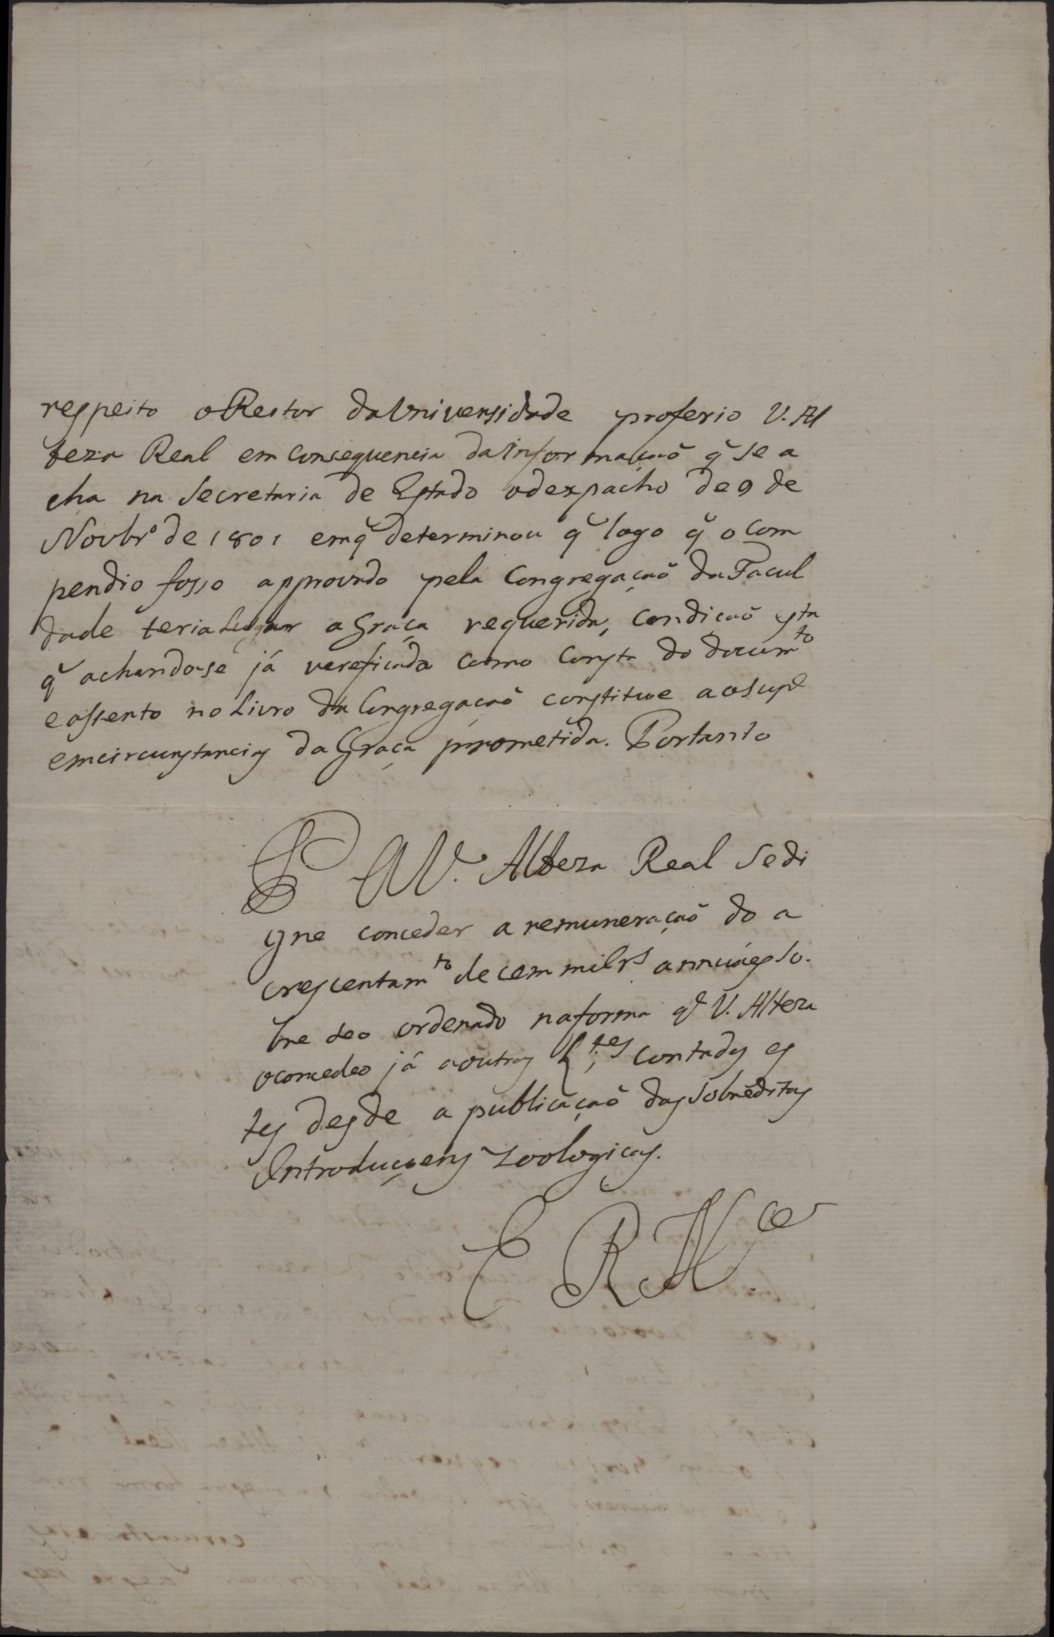 respeito o Reitor da Universidade proferio V. Al
teza Real em consequencia da Informaçaõ q̃ se a
cha na Secretaria de Estado o despacho de 9 de
Novbr.º de 1801 em q̃ determinou q̃ logo q̃ o Com
pendio fosse approvado pela Congregaçaõ da Facul
dade teria Lugar a Graça requerida, condicaõ esta
q̃ achando-se já vereficada como consta do docum.to
e assento no Livro da Congregaçaõ constitue ao Sup.e
em circunstancias da Graça prometida. Portanto
P A V. Alteza Real Se di
gne conceder a remuneraçaõ do a
crescentam.to de cem mil r.s annuáes so-
bre seo ordenado na forma q̃ V. Alteza
o concedeo já a outros L.tes, contados es
tes desde a publicaçaõ das Sobreditas
Introducçoens Zoologicas.
E R M.ce